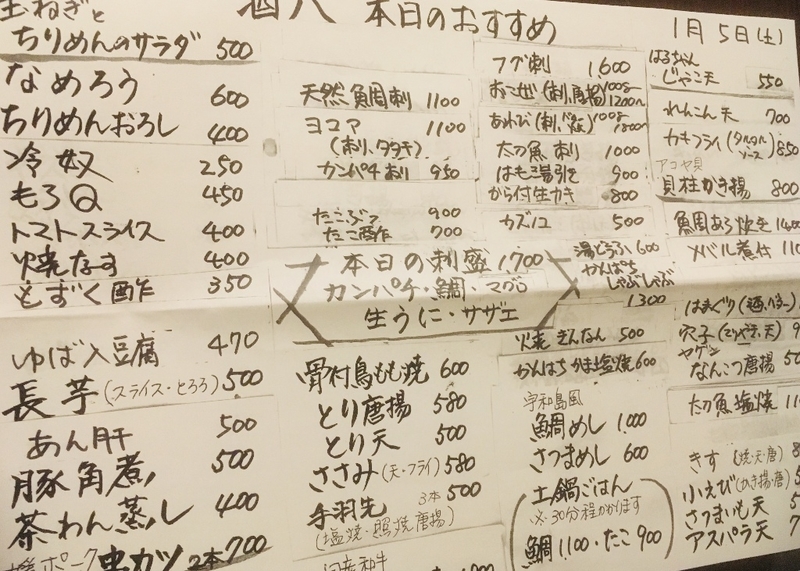 玉ねぎと
ちりめんのサラダ 500
なめろう 600
ちりめんおろし 400
冷奴 250
もろQ 450
トマトスライス 400
焼なす 400
もずく酢 350
ゆば入豆腐 470
長芋(スライス・とろろ) 500
あん肝 500
豚角煮 500
茶わん蒸し 400
串カツ 2本 700
本日のおすすめ
1月5日(土)
天然魚周刺 1100
ヨコワ 1100
(刺り、タタキ)
カンパチ 950
たこぶつ 900
たこ酢 700
本日の刺盛 1,700
カンパチ・鯛・マグロ
生うに・サザエ
骨付鳥もも焼 600
とり唐揚 580
とり天 500
ささみ(天・フライ) 580
手羽先 3本 500
(塩焼・照焼、唐揚)
国産和牛
フグ刺 1,600
おこぜ(刺、唐揚) 100g 1200〜
あわび(刺、バタ) 100g 1800〜
太刀魚刺 1000
はも湯引き 900
から付生カキ 800
カズノコ 500
湯どうふ 600
かんぱち
しゃぶしゃぶ
1300
焼ぎんなん 500
かんぱちかま塩焼 600
宇和島風
鯛めし 1,000
さつまめし 600
土鍋ごはん
※30分程かかります
鯛 1100・たこ 900
はるちゃん
じゃこ天 550
れんこん天 700
カキフライ(タルタルソース) 850
アコヤ貝
貝柱かき揚 800
魚周あら炊き
メバル煮付
はまぐり(酒、バター)
穴子(てりやき、天)
ヤゲン
なんこつ唐揚
太刀魚塩焼
きす(焼・天・唐)
小えび(かき揚・唐)
さつまいも天
アスパラ天